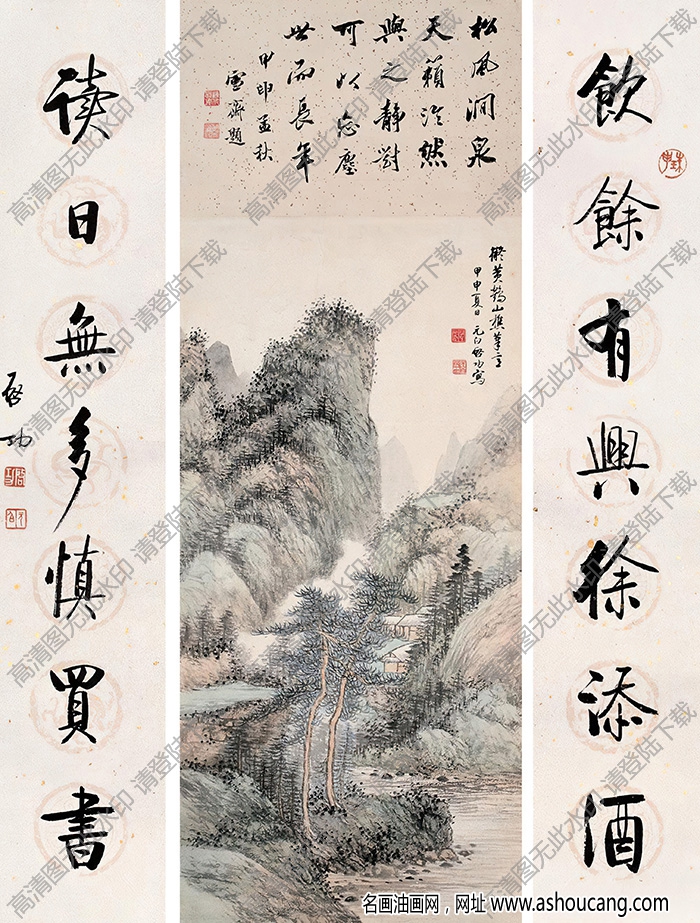 飲餘有興徐添酒
讀日無多慎買書
啓功
松風澗泉
天籟泠然
與之靜對
可以忘塵
世而長年
甲申孟秋
雪齋題
擬黃鶴山樵筆意
甲申夏日 元白啓功寫
高清图无此水印 请登陆下载
名画油画网，网址 www.ashoucang.com